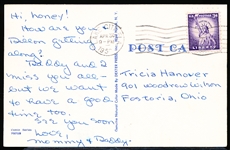 Hi, honey!
How are you &
getting
along?
Daddy and I
miss you all-
but we want
to have a good
time too.
See you soon
Love,
Mommy & Daddy.
POST CA
Tricia Hanover
901 Woodrow Wilson
Fostoria, Ohio
LIBERTY
3¢